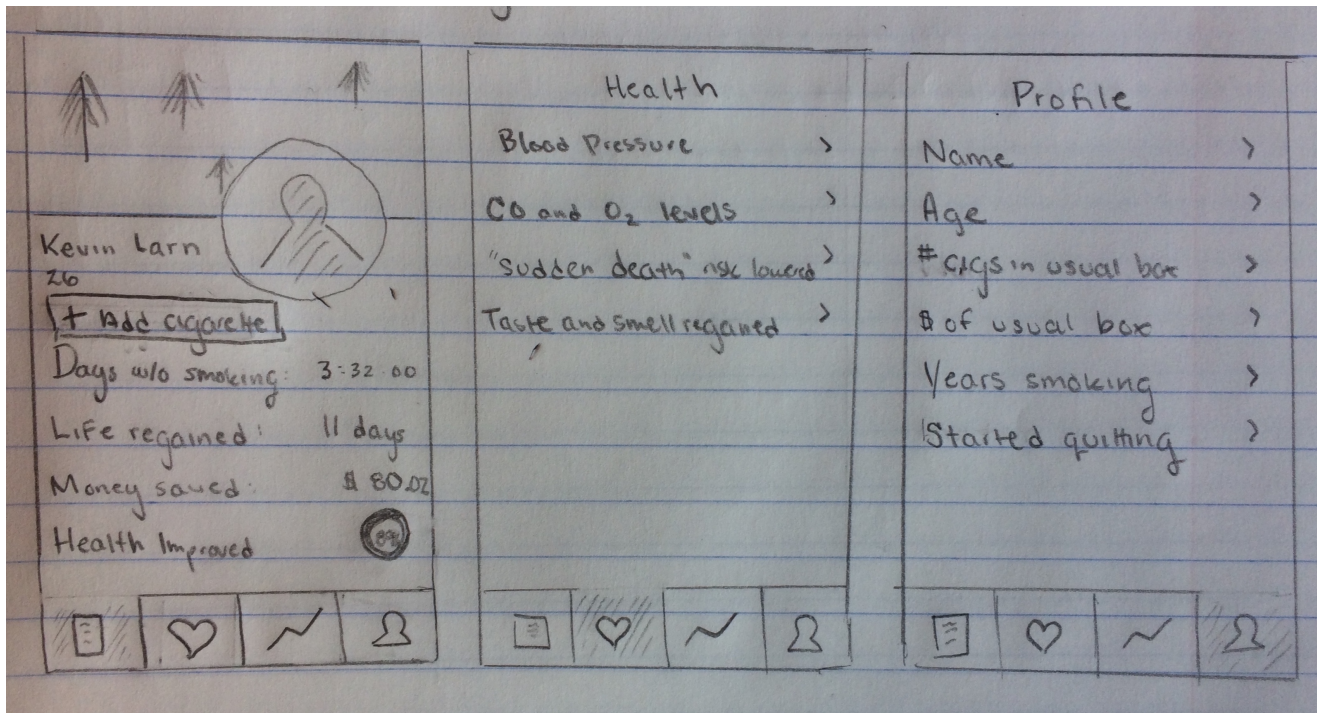 Kevin Larn
26
+ Add cigarette
Days w/o smoking: 3:32:00
Life regained: 11 days
Money saved: $80.02
Health Improved
Health
Blood Pressure >
CO and O₂ levels >
"sudden death" risk lowered >
Taste and smell regained >
Profile
Name >
Age >
# cigs in usual box >
$ of usual box >
Years smoking >
Started quitting >